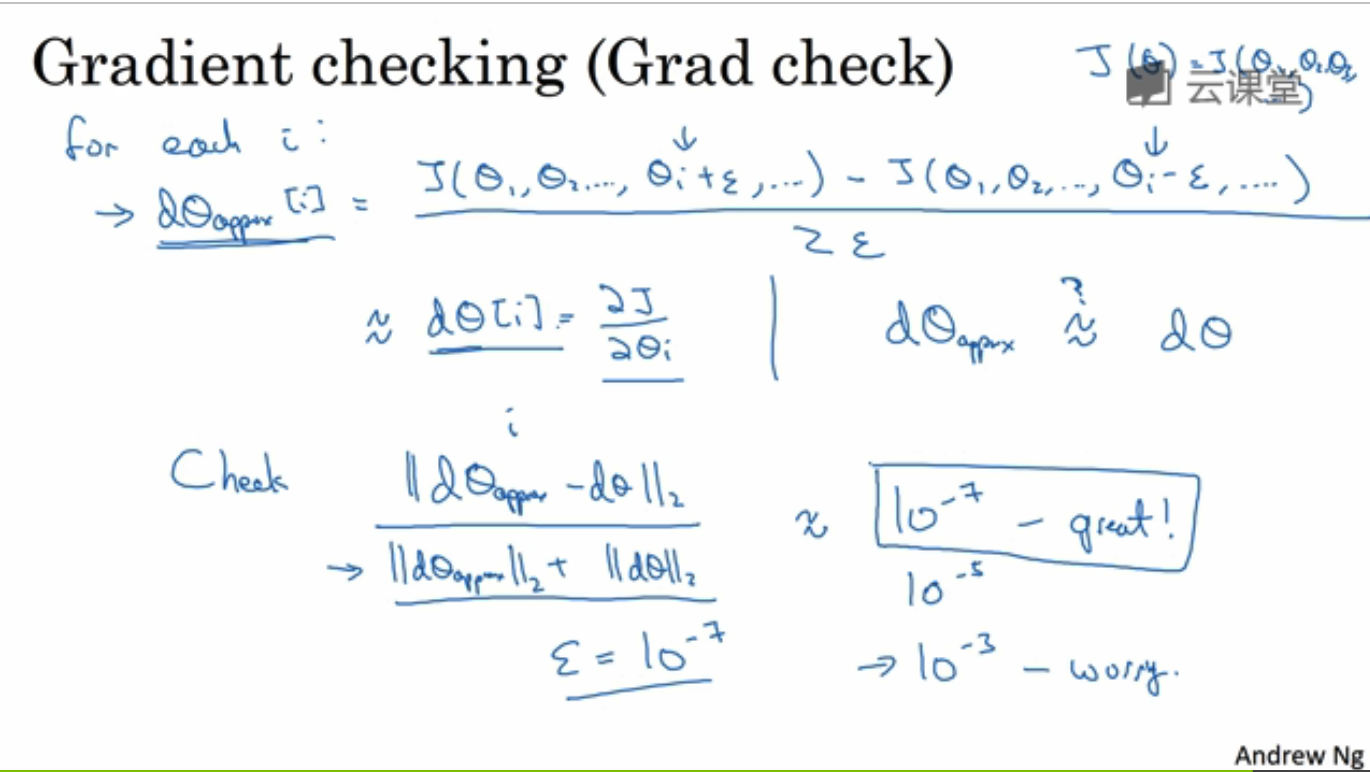 Gradient checking (Grad check)
J(θ) = J(θ₁, θ₂, θ₃, ...)
云课堂
for each i:
→ dθapprox[i] = (J(θ₁, θ₂, ..., θi+ε, ...) - J(θ₁, θ₂, ..., θi-ε, ....)) / 2ε
≈ dθ[i] = ∂J/∂θi | dθapprox ≈? dθ
i
Check ||dθapprox - dθ||₂ / (||dθapprox||₂ + ||dθ||₂) ≈ 10⁻⁷ - great!
10⁻⁵
ε = 10⁻⁷ → 10⁻³ - worry.
Andrew Ng